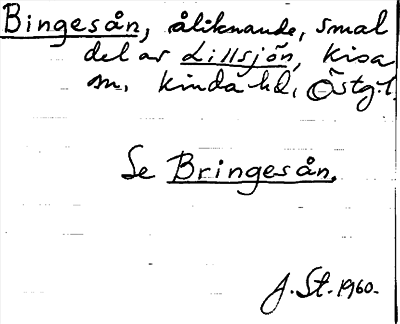 Bingesån, åliknande, smal
del av Lillsjön, Kisa
sn, Kinda hd, Östg.l.
Se Bringesån.
J. St. 1960.